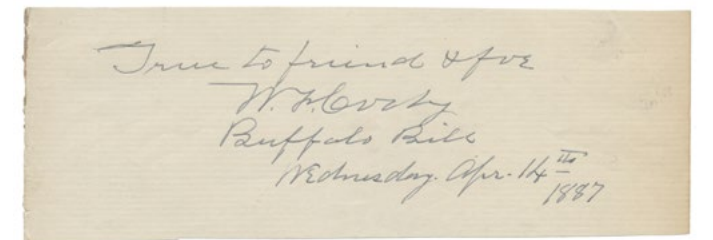 True to friend & foe
W. F. Cody
Buffalo Bill
Wednesday. Apr. 14th
1887